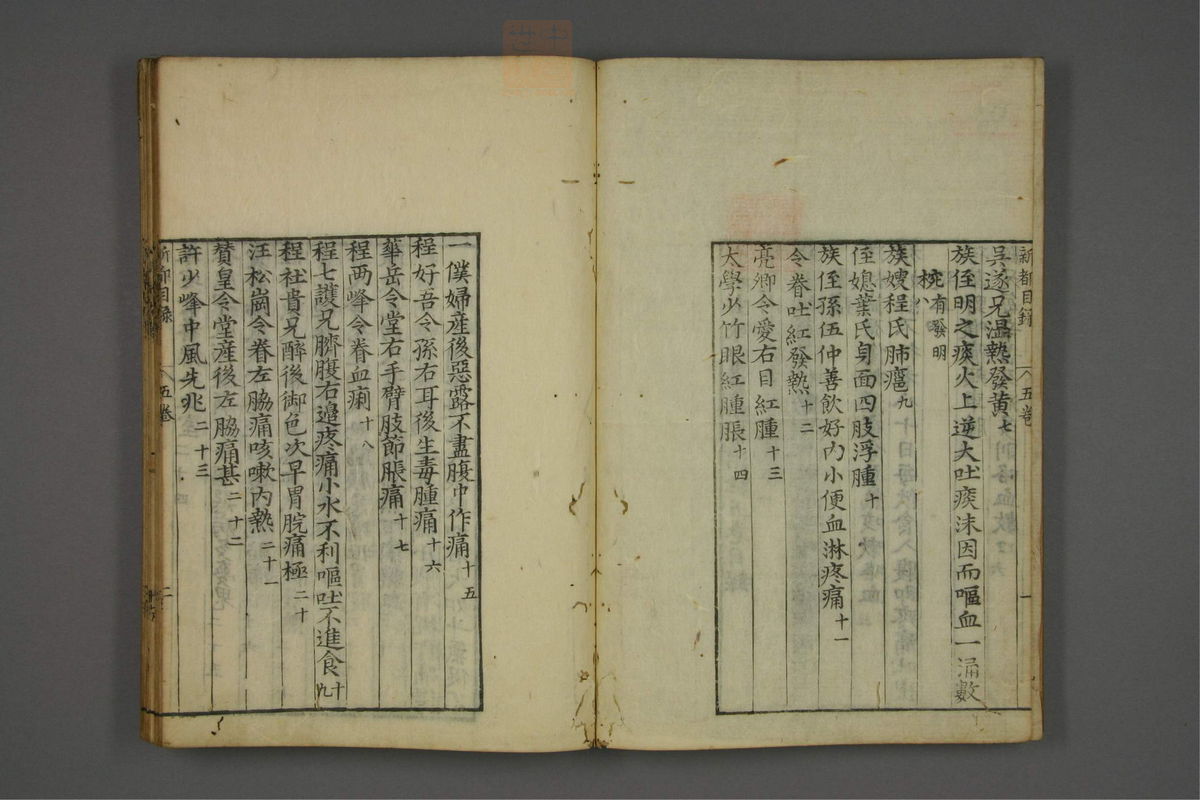 新都目錄 五卷 一
吳遂兄溫熱發黃 七
族侄明之痰火上逆大吐痰沫因而嘔血一涌數
椀 有發明 八
族嫂程氏肺癰 九
侄媳葉氏身面四肢浮腫 十
族侄孫伍仲善飲好內小便血淋疼痛 十一
令眷吐紅發熱 十二
亮卿令愛右目紅腫 十三
大學少竹眼紅腫脹 十四
一僕婦產後惡露不盡腹中作痛 十五
程好吾令孫右耳後生毒腫痛 十六
華岳令堂右手臂肢節脹痛 十七
程两峰令眷血痢 十八
程七護兄臍腹右邉疼痛小水不利嘔吐不進食 十九
程社貴兄醉後御色次早胃脘痛極 二十
汪松崗令眷左脇痛咳嗽內熱 二十一
賛皇令堂產後左脇痛甚 二十二
許少峰中風先兆 二十三
新都目錄 五卷 二